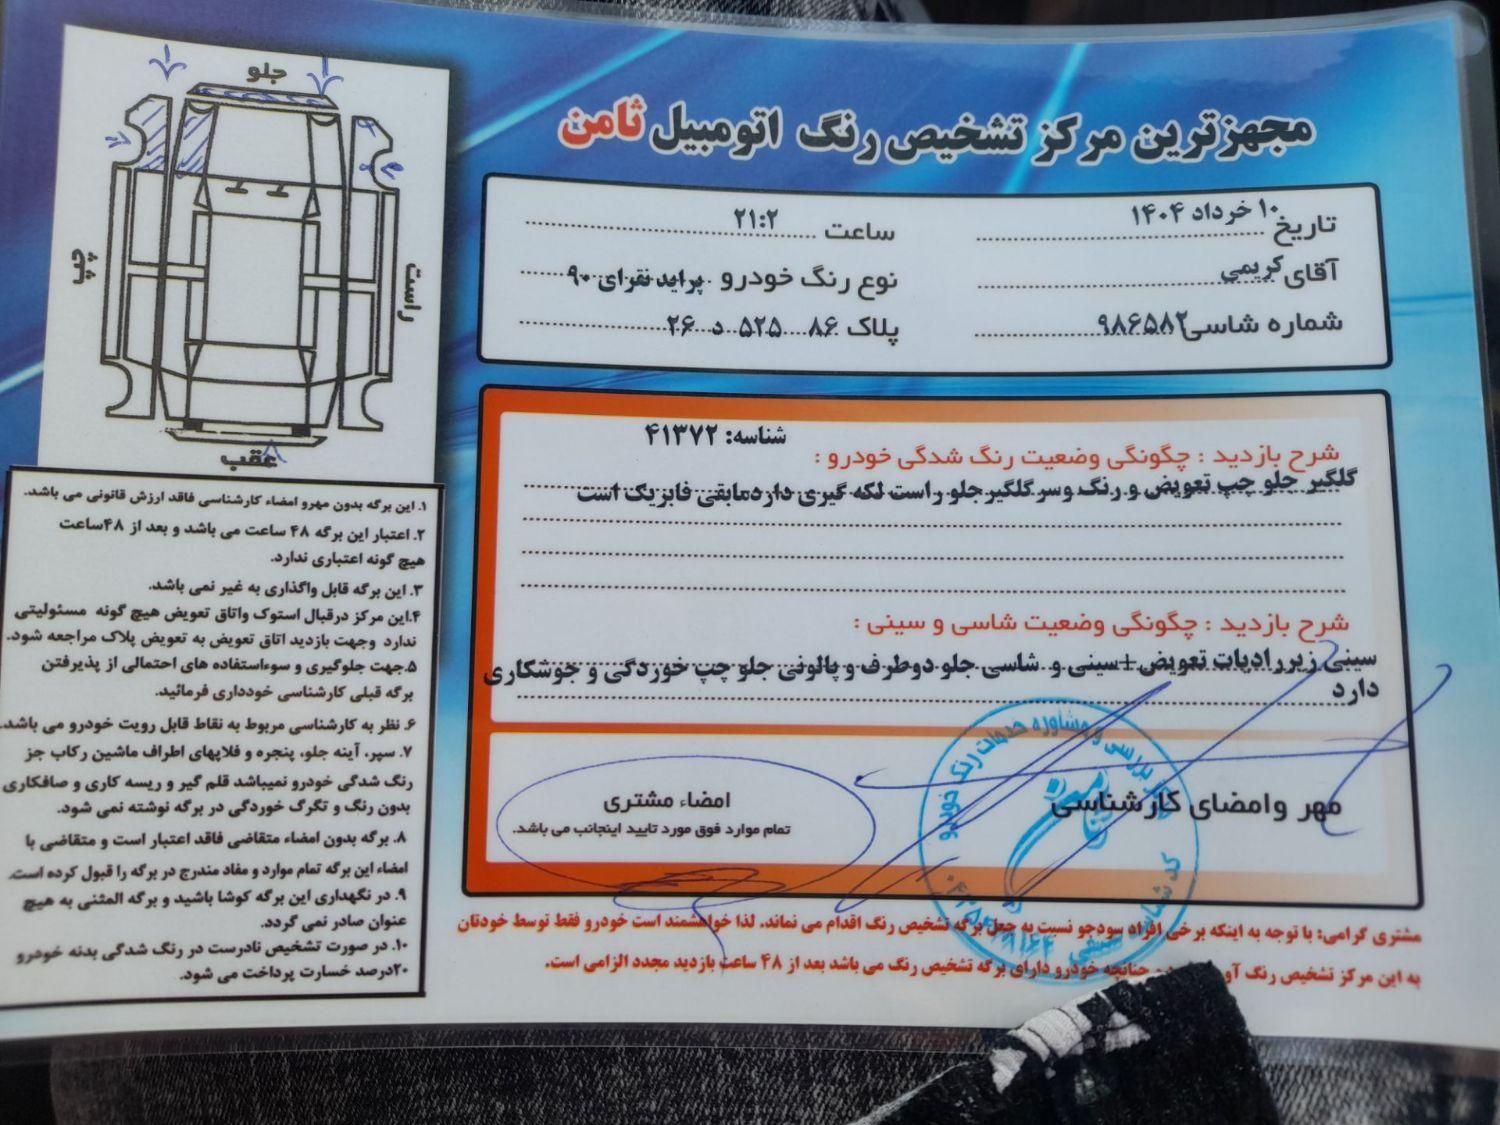 مجهزترین مرکز تشخیص رنگ اتومبیل ثامن
تاریخ ۱۰ خرداد ۱۴۰۴
ساعت ۲۱:۲
آقای کریمی
نوع رنگ خودرو پراید نقرای ۹۰
شماره شاسی ۹۸۶۵۸۲
پلاک ۸۶ ۵۲۵ د ۲۶
شناسه: ۴۱۳۷۲
شرح بازدید : چگونگی وضعیت رنگ شدگی خودرو :
گلگیر جلو چپ تعویض و رنگ وسر گلگیر جلو راست لکه گیری داردمابقی فابریک است
شرح بازدید : چگونگی وضعیت شاسی و سینی :
سینی زیررادیات تعویض+سینی و شاسی جلو دوطرف و پالونی جلو چپ خوردگی و جوشکاری
دارد
مهر وامضای کارشناسی
امضاء مشتری
تمام موارد فوق مورد تایید اینجانب می باشد.
مشتری گرامی: با توجه به اینکه برخی افراد سودجو نسبت به جعل برگه تشخیص رنگ اقدام می نماند. لذا خواهشمند است خودرو فقط توسط خودتان
به این مرکز تشخیص رنگ چنانچه خودرو دارای برگه تشخیص رنگ می باشد بعد از ۴۸ ساعت بازدید مجدد الزامی است.
جلو
چپ
راست
عقب
۱. این برگه بدون مهرو امضاء کارشناسی فاقد ارزش قانونی می باشد.
۲. اعتبار این برگه ۴۸ ساعت می باشد و بعد از ۴۸ساعت
هیچ گونه اعتباری ندارد.
۳. این برگه قابل واگذاری به غیر نمی باشد.
۴.این مرکز درقبال استوک واتاق تعویض هیچ گونه مسئولیتی
ندارد وجهت بازدید اتاق تعویض به تعویض پلاک مراجعه شود.
۵.جهت جلوگیری و سوءاستفاده های احتمالی از پذیرفتن
برگه قبلی کارشناسی خودداری فرمائید.
۶. نظر به کارشناسی مربوط به نقاط قابل رویت خودرو می باشد.
۷. سپر، آینه جلو، پنجره و فلاپهای اطراف ماشین رکاب جز
رنگ شدگی خودرو نمیباشد قلم گیر و ریسه کاری و صافکاری
بدون رنگ و تگرگ خوردگی در برگه نوشته نمی شود.
۸. برگه بدون امضاء متقاضی فاقد اعتبار است و متقاضی با
امضاء این برگه تمام موارد و مفاد مندرج در برگه را قبول کرده است.
۹. در نگهداری این برگه کوشا باشید و برگه المثنی به هیچ
عنوان صادر نمی گردد.
۱۰. در صورت تشخیص نادرست در رنگ شدگی بدنه خودرو
۲۰درصد خسارت پرداخت می شود.